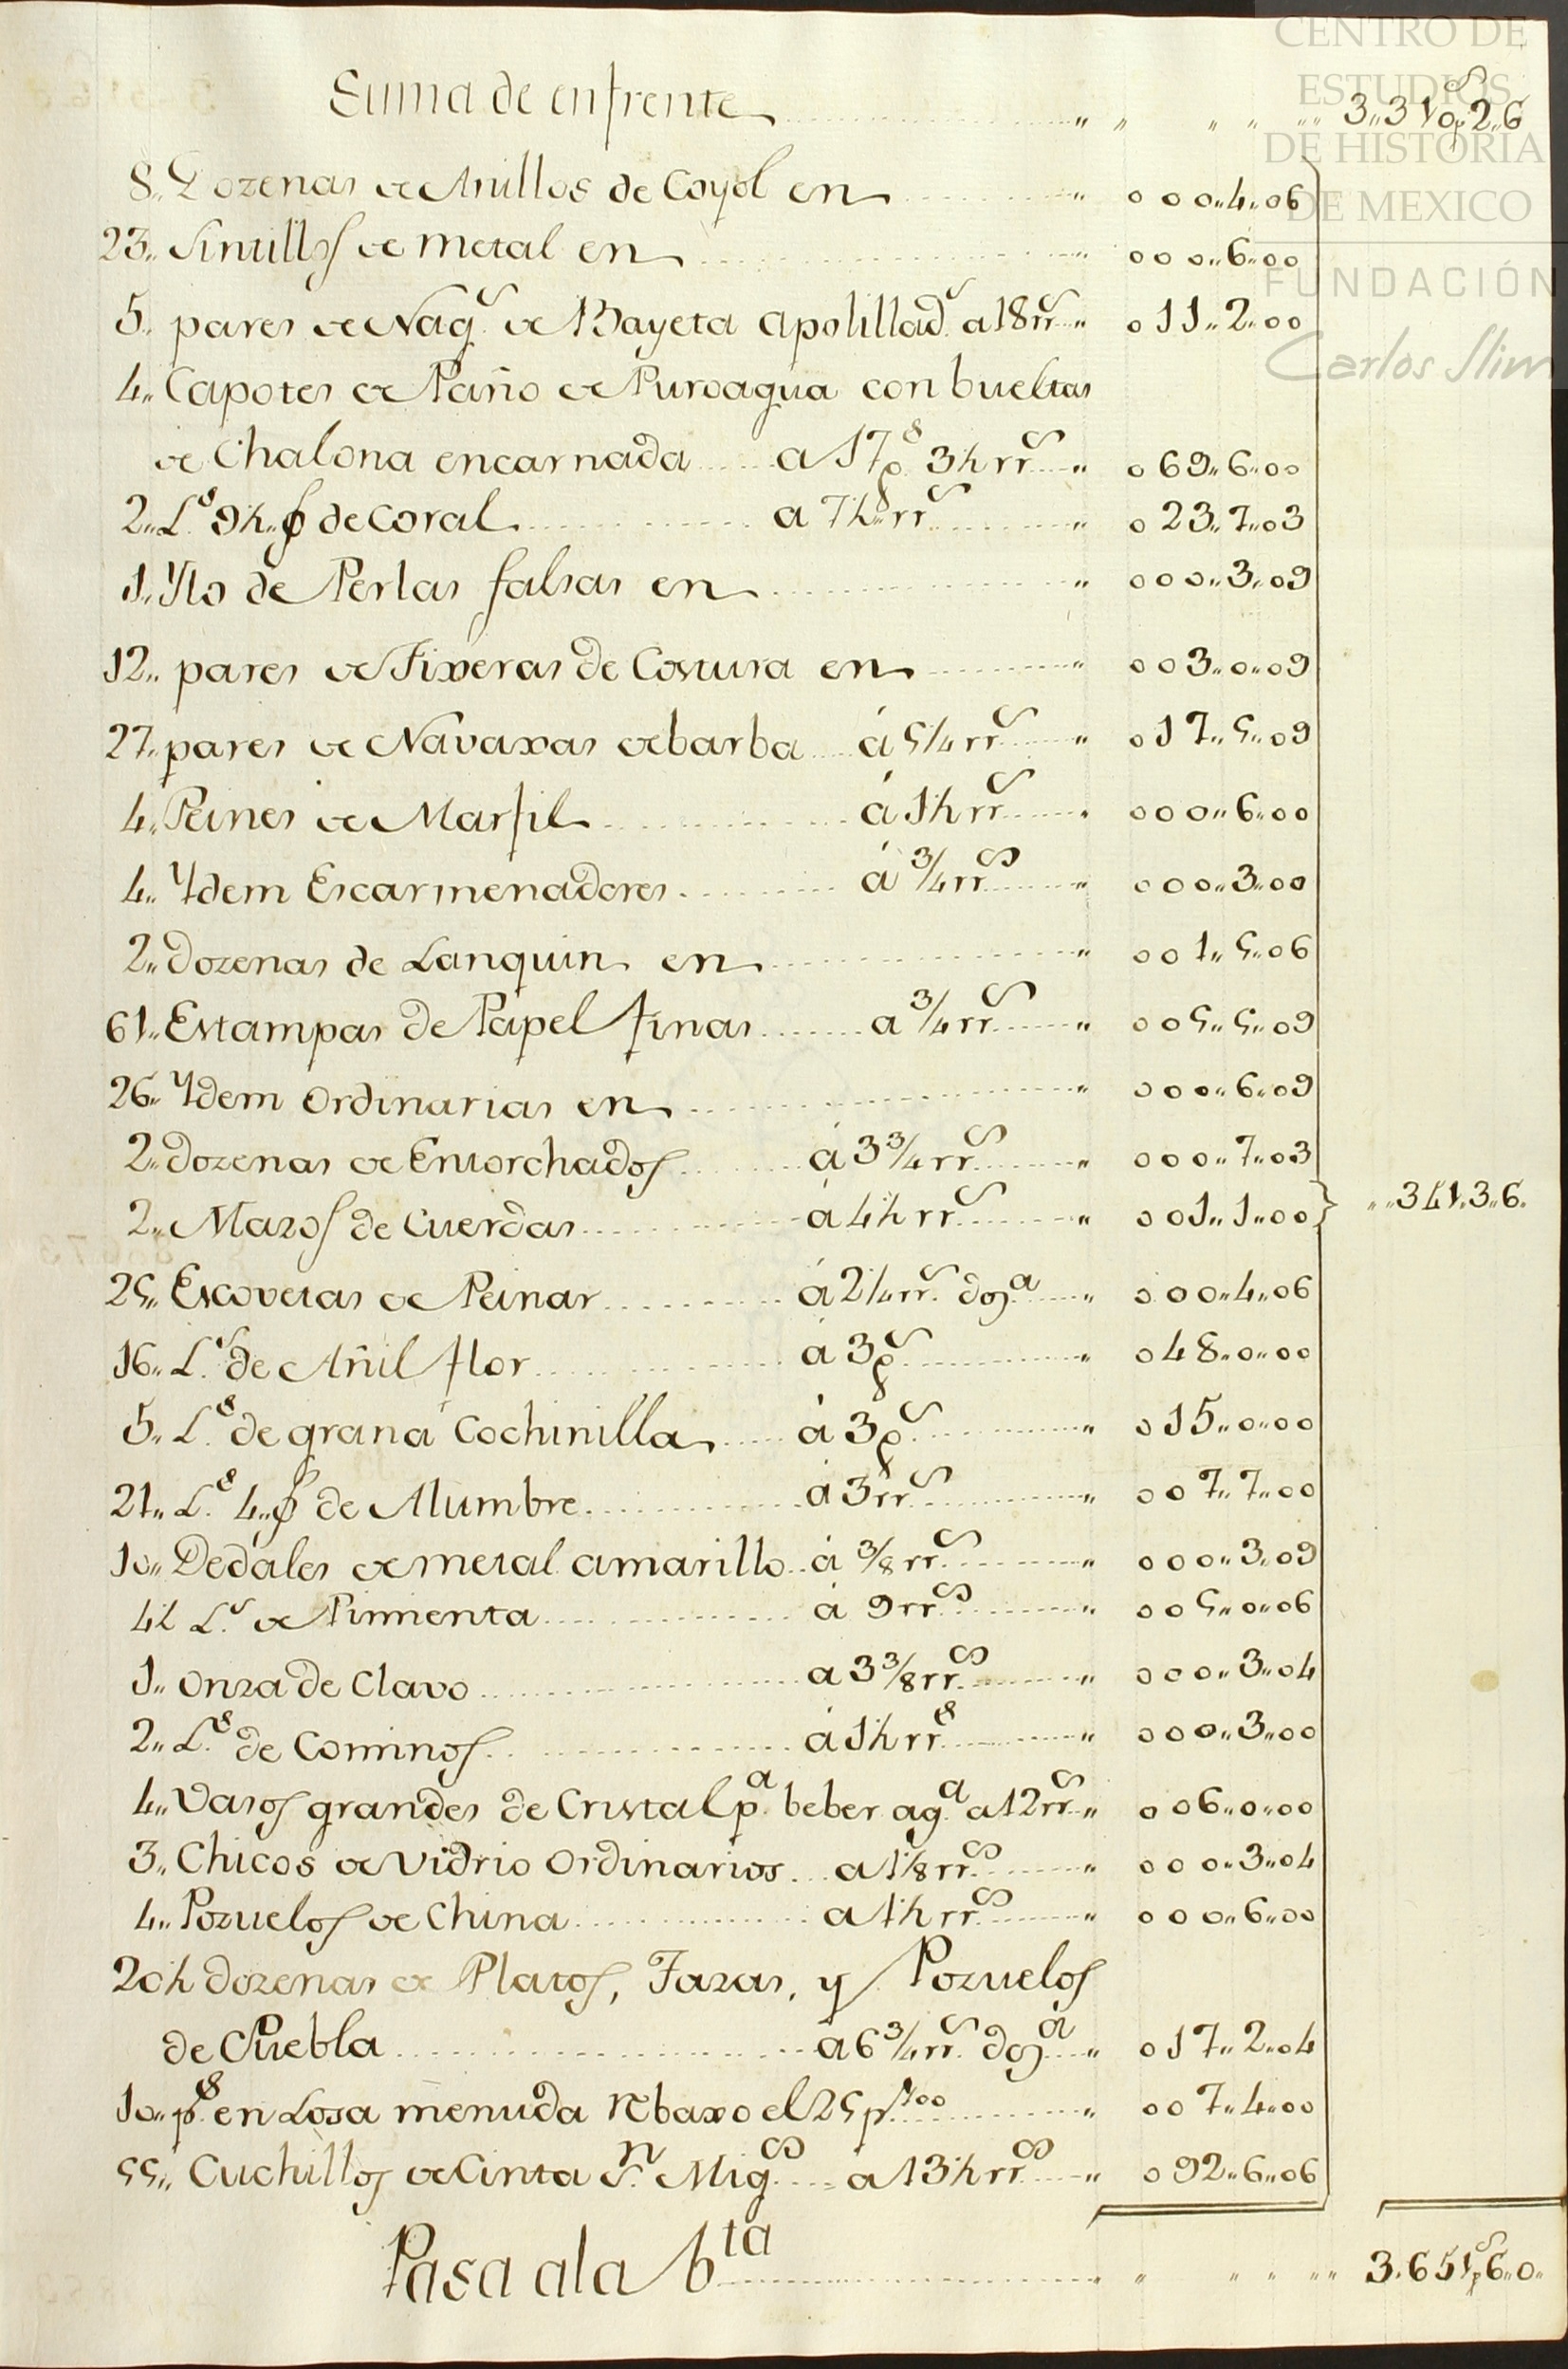 CENTRO DE
ESTUDIOS
DE HISTORIA
DE MEXICO
FUNDACIÓN
Carlos Slim
Suma de enfrente 3,,310p.s2,,6
8,, Dozenas de Anillos de Coyol en 000,,4,,06
23,, Sintillos de metal en 000,,6,,00
5,, pares de Nag.s de Bayeta apolillad.s a 18 rr.s 011,,2,,00
4,, Capotes de Paño de Puroagua con bueltas
de Chalona encarnada a 17p.s 3½ rr.s 069,,6,,00
2,, L.s 9½,, de Coral a 7½ rr.s 023,,7,,03
1,, Ylo de Perlas falsas en 000,,3,,09
12,, pares de Tixeras de Costura en 003,,0,,09
27,, pares de Navaxas de barba á 5¼ rr.s 017,,5,,09
4,, Peines de Marfil á 1½ rr.s 000,,6,,00
4,, Ydem Escarmenadores á ¾ rr.s 000,,3,,00
2,, Dozenas de Lanquin en 001,,5,,06
61,, Estampas de Papel finas a ¾ rr.s 005,,5,,09
26,, Ydem Ordinarias en 000,,6,,09
2,, Dozenas de Entorchados á 3¾ rr.s 000,,7,,03
2,, Mazos de Cuerdas á 4½ rr.s 001,,1,,00 } ,,341,,3,,6.
25,, Escovetas de Peinar á 2¼ rr.s doz.a 000,,4,,06
16,, L.s de Añil flor á 3p.s 048,,0,,00
5,, L.s de grana Cochinilla á 3p.s 015,,0,,00
21,, L.s 4,, de Alumbre á 3 rr.s 007,,7,,00
10,, Dedales de metal amarillo á ⅜ rr.s 000,,3,,09
4½ L.s de Pimienta á 9 rr.s 005,,0,,06
1,, Onza de Clavo a 3⅜ rr.s 000,,3,,04
2,, L.s de Cominos á 1½ rr.s 000,,3,,00
4,, Vasos grandes de Cristal p.a beber ag.a a 12 rr.s 006,,0,,00
3,, Chicos de Vidrio Ordinarios a 1⅛ rr.s 000,,3,,04
4,, Pozuelos de China a 1½ rr.s 000,,6,,00
20½ Dozenas de Platos, Tazas, y Pozuelos
de Puebla á 6¾ rr.s doz.a 017,,2,,04
10,, p.s en Losa menuda rebaxo el 25 p%00 007,,4,,00
55,, Cuchillos de Cinta S.n Mig.s a 13½ rr.s 092,,6,,06
Pasa a la b.ta 3.651p.s6,,0,,